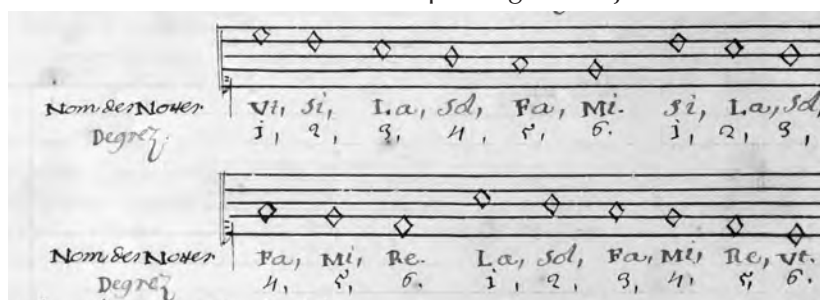 Nom des Nottes Vt, Si, La, Sol, Fa, Mi. Si, La, Sol,
Degrez. 1, 2, 3, 4, 5, 6. 1, 2, 3,
Nom des Nottes Fa, Mi, Re. La, Sol, Fa, Mi, Re, Vt.
Degrez 4, 5, 6. 1, 2, 3, 4, 5, 6.